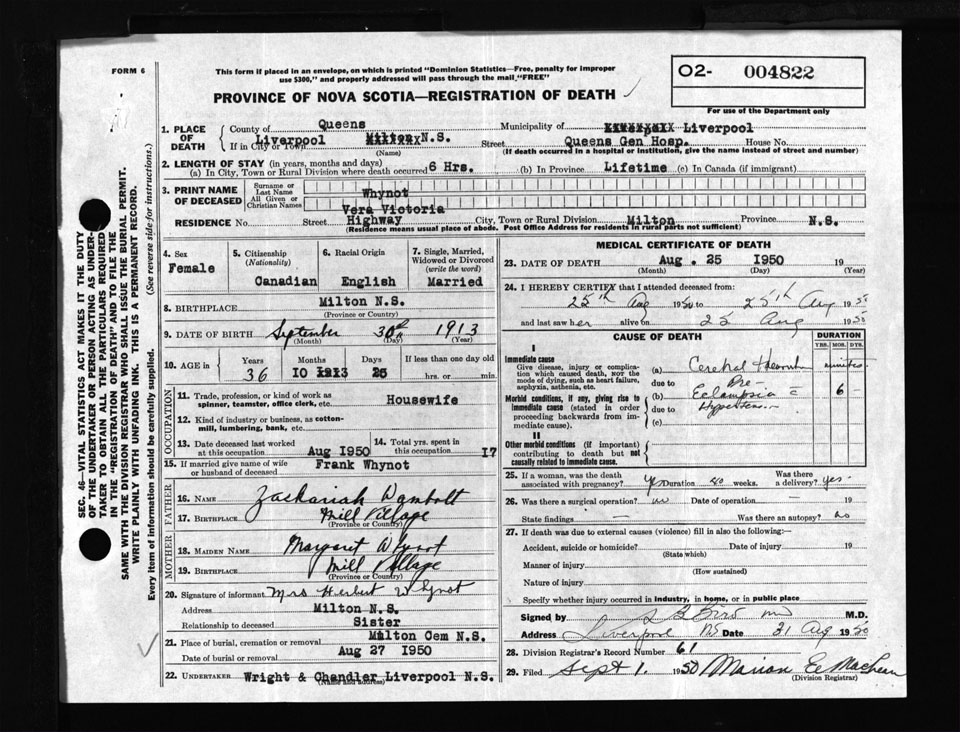 FORM 6
This form if placed in an envelope, on which is printed "Dominion Statistics—Free, penalty for improper
use $300," and properly addressed will pass through the mail "FREE"
PROVINCE OF NOVA SCOTIA—REGISTRATION OF DEATH
O2- 004822
For use of the Department only
1. PLACE OF DEATH
County of Queens Municipality of Liverpool
If in City or Town Liverpool Milton N.S. Street Queens Gen Hosp. House No.
(Name) (If death occurred in a hospital or institution, give the name instead of street and number)
2. LENGTH OF STAY (in years, months and days)
(a) In City, Town or Rural Division where death occurred 6 Hrs. (b) In Province Lifetime (c) In Canada (if immigrant)
3. PRINT NAME OF DECEASED
Surname or Last Name Whynot
All Given or Christian Names Vera Victoria
RESIDENCE No. Street Highway City, Town or Rural Division Milton Province N.S.
(Residence means usual place of abode. Post Office Address for residents in rural parts not sufficient)
4. Sex Female
5. Citizenship (Nationality) Canadian
6. Racial Origin English
7. Single, Married, Widowed or Divorced (write the word) Married
8. BIRTHPLACE Milton N.S.
(Province or Country)
9. DATE OF BIRTH September 30th 1913
(Month) (Day) (Year)
10. AGE in Years Months Days If less than one day old
36 10 25 hrs. or min.
OCCUPATION
11. Trade, profession, or kind of work as spinner, teamster, office clerk, etc. Housewife
12. Kind of industry or business, as cotton-mill, lumbering, bank, etc.
13. Date deceased last worked at this occupation Aug 1950
14. Total yrs. spent in this occupation 17
15. If married give name of wife or husband of deceased Frank Whynot
FATHER
16. NAME Zachariah Wambolt
17. BIRTHPLACE Mill Village
(Province or Country)
MOTHER
18. MAIDEN NAME Margaret Whynot
19. BIRTHPLACE Mill Village
(Province or Country)
20. Signature of informant Mrs Herbert Whynot
Address Milton N.S.
Relationship to deceased Sister
21. Place of burial, cremation or removal Milton Cem N.S.
Date of burial or removal Aug 27 1950
22. UNDERTAKER Wright & Chandler Liverpool N.S.
(Name and address)
MEDICAL CERTIFICATE OF DEATH
23. DATE OF DEATH Aug. 25 1950 19
(Month) (Day) (Year)
24. I HEREBY CERTIFY that I attended deceased from:
25th Aug 1950 to 25th Aug 1950
and last saw her alive on 25 Aug 1950
CAUSE OF DEATH
DURATION
YRS. MOS. DYS.
I
Immediate cause
Give disease, injury or complication which caused death, not the mode of dying, such as heart failure, asphyxia, asthenia, etc.
(a) Cerebral
due to
Morbid conditions, if any, giving rise to immediate cause (stated in order proceeding backwards from immediate cause).
(b) Pre-Eclampsia 6
due to
(c)
II
Other morbid conditions (if important) contributing to death but not causally related to immediate cause.
25. If a woman, was the death associated with pregnancy? Yes Duration 40 weeks. Was there a delivery? Yes
26. Was there a surgical operation? no Date of operation — 19
State findings — Was there an autopsy? no
27. If death was due to external causes (violence) fill in also the following:—
Accident, suicide or homicide? Date of injury 19
(State which)
Manner of injury
(How sustained)
Nature of injury
Specify whether injury occurred in industry, in home, or in public place
Signed by M.D.
Address Liverpool NS Date 31 Aug 1950
28. Division Registrar's Record Number 61
29. Filed Sept 1. 1950 Marion E MacLearn
(Division Registrar)
SEC. 46—VITAL STATISTICS ACT MAKES IT THE DUTY
OF THE UNDERTAKER OR PERSON ACTING AS UNDERTAKER TO OBTAIN ALL THE PARTICULARS REQUIRED
IN THE "REGISTRATION OF DEATH" AND TO FILE THE
SAME WITH THE DIVISION REGISTRAR WHO SHALL ISSUE THE BURIAL PERMIT.
WRITE PLAINLY WITH UNFADING INK. THIS IS A PERMANENT RECORD.
Every item of information should be carefully supplied. (See reverse side for instructions.)